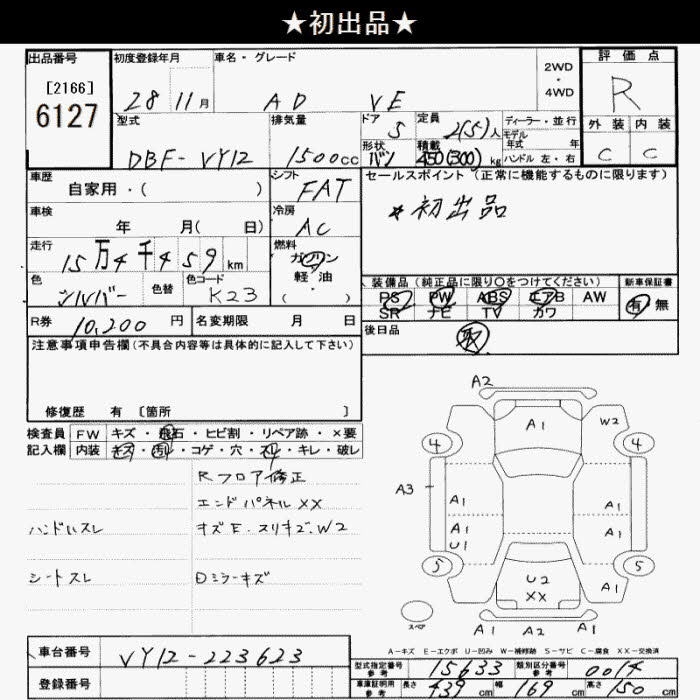 ★初出品★
出品番号 初度登録年月 車名・グレード 2WD・4WD 評価点
[2166]
6127
28 11月 AD VE R
型式 排気量 ドア 定員 ディーラー・並行 外装 内装
5 2(5)人 モデル年式 年
DBF-VY12 1500cc 形状 バン 積載 450(300)kg ハンドル 左・右 C C
車歴 自家用・( ) シフト FAT セールスポイント(正常に機能するものに限ります)
車検 年 月( 日) 冷房 AC ★初出品
走行 15万4千459km 燃料 ガソリン 軽・油 ( )
色 シルバー 色替 色コード K23 装備品(純正品に限り○をつけてください) 新車保証書
PS PW ABS エアB AW 有 無
SR ナビ TV カワ
R券 10,200円 名変期限 月 日 後日品
取
注意事項申告欄(不具合内容等は具体的に記入して下さい)
修復歴 有 [箇所 ]
検査員 FW キズ・飛石・ヒビ割・リペア跡・×要
記入欄 内装 キズ・汚れ・コゲ・穴・スレ・キレ・破レ
Rフロア修正
エンドパネルXX
ハンドルスレ キズE.スリキズ.W2
シートスレ Dミラーキズ
A2
A1 W2
4 4
A3 A1 A1
A1 A1
U1
5 5
U2 A1
XX
スペア
A1 A2 A1
A-キズ E-エクボ U-凹み W-補修跡 S-サビ C-腐食 XX-交換済
車台番号 VY12-223623 型式指定番号 参考 15633 類別区分番号 参考 0014
登録番号 車庫証明用 参考 長さ 439cm 幅 169cm 高さ 150cm